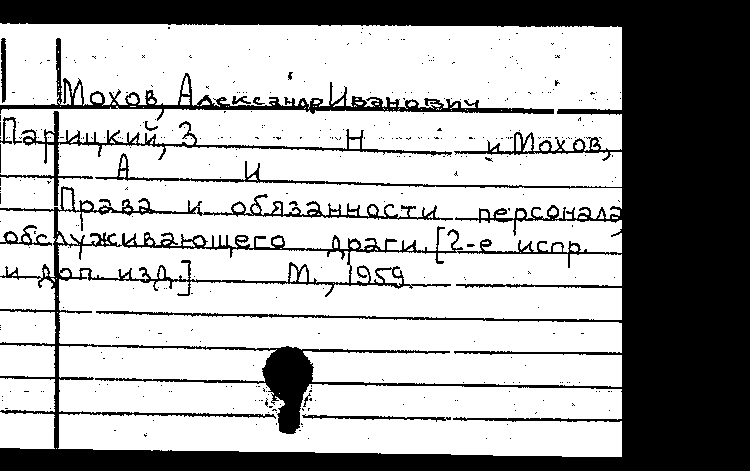 Мохов, Александр Иванович
Парицкий, З Н и Мохов,
А И
Права и обязанности персонала
обслуживающего драги. [2-е испр.
и доп. изд.] М., 1959